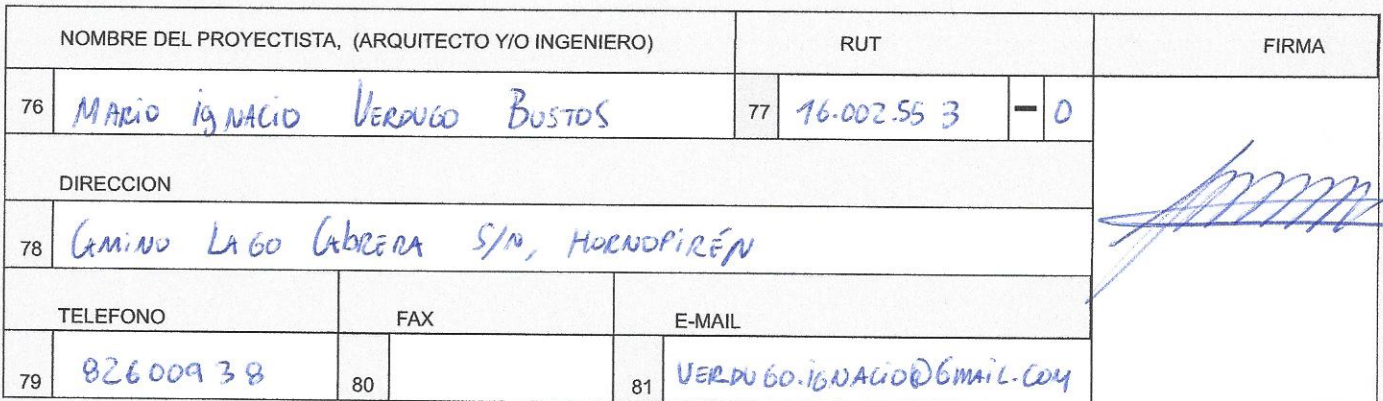 NOMBRE DEL PROYECTISTA, (ARQUITECTO Y/O INGENIERO) RUT FIRMA
76 MARIO IGNACIO VERDUGO BUSTOS 77 16.002.553 - 0
DIRECCION
78 CAMINO LAGO CABRERA S/N, HORNOPIRÉN
TELEFONO FAX E-MAIL
79 82600938 80 81 VERDUGO.IGNACIO@GMAIL.COM